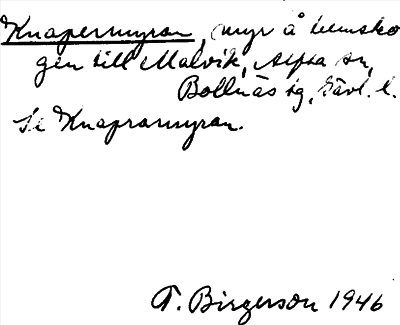 Knapermyran, myr å hemsko
gen till Malvik, Alfta sn,
Bollnäs tg, Gävl. l.
Se Knaprarmyran.
T. Birgerson 1946